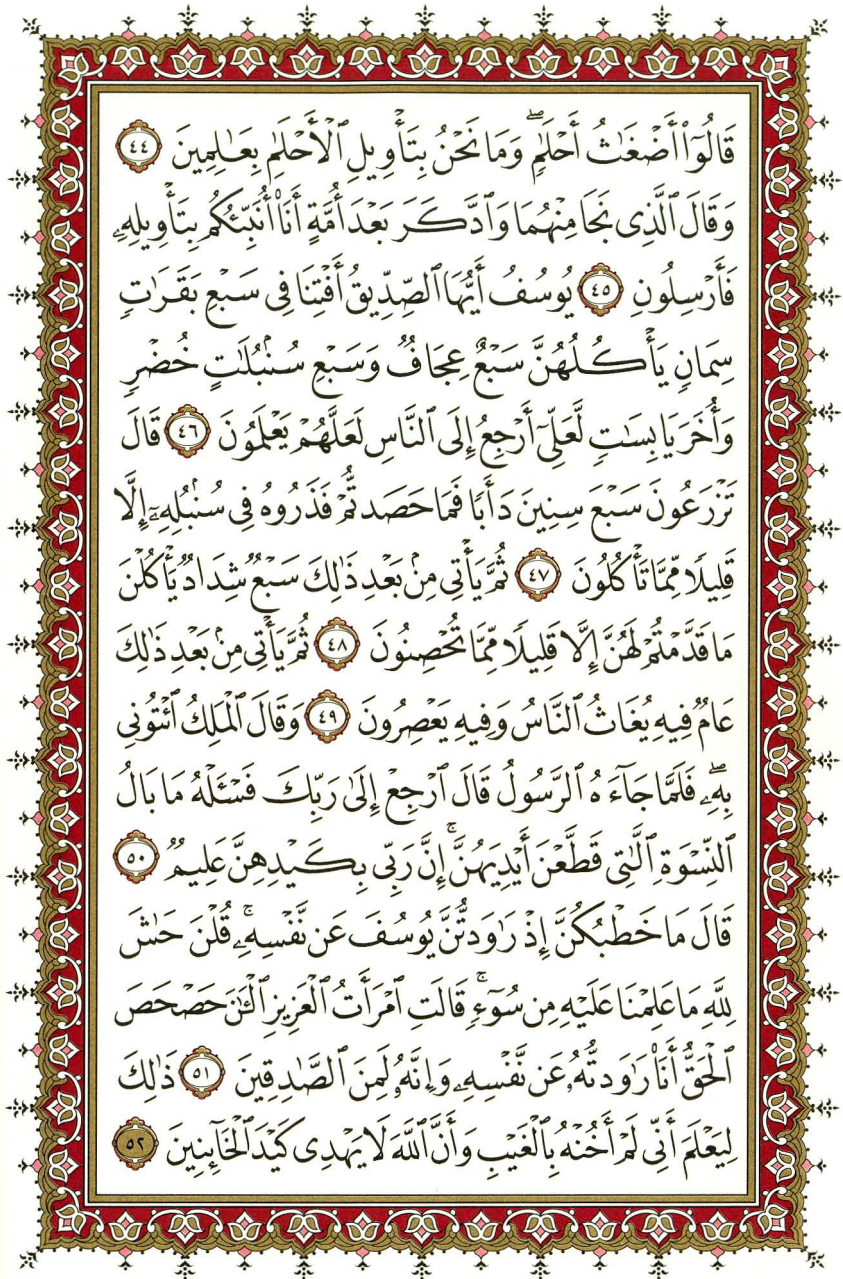 قَالُوٓاْ أَضْغَٰثُ أَحْلَٰمٖۖ وَمَا نَحْنُ بِتَأْوِيلِ ٱلْأَحْلَٰمِ بِعَٰلِمِينَ ٤٤
وَقَالَ ٱلَّذِى نَجَا مِنْهُمَا وَٱدَّكَرَ بَعْدَ أُمَّةٍ أَنَا۠ أُنَبِّئُكُم بِتَأْوِيلِهِۦ
فَأَرْسِلُونِ ٤٥ يُوسُفُ أَيُّهَا ٱلصِّدِّيقُ أَفْتِنَا فِى سَبْعِ بَقَرَٰتٖ
سِمَانٖ يَأْكُلُهُنَّ سَبْعٌ عِجَافٞ وَسَبْعِ سُنۢبُلَٰتٍ خُضْرٖ
وَأُخَرَ يَابِسَٰتٖ لَّعَلِّىٓ أَرْجِعُ إِلَى ٱلنَّاسِ لَعَلَّهُمْ يَعْلَمُونَ ٤٦ قَالَ
تَزْرَعُونَ سَبْعَ سِنِينَ دَأَبٗا فَمَا حَصَدتُّمْ فَذَرُوهُ فِى سُنۢبُلِهِۦٓ إِلَّا
قَلِيلٗا مِّمَّا تَأْكُلُونَ ٤٧ ثُمَّ يَأْتِى مِنۢ بَعْدِ ذَٰلِكَ سَبْعٞ شِدَادٞ يَأْكُلْنَ
مَا قَدَّمْتُمْ لَهُنَّ إِلَّا قَلِيلٗا مِّمَّا تُحْصِنُونَ ٤٨ ثُمَّ يَأْتِى مِنۢ بَعْدِ ذَٰلِكَ
عَامٞ فِيهِ يُغَاثُ ٱلنَّاسُ وَفِيهِ يَعْصِرُونَ ٤٩ وَقَالَ ٱلْمَلِكُ ٱئْتُونِى
بِهِۦۖ فَلَمَّا جَآءَهُ ٱلرَّسُولُ قَالَ ٱرْجِعْ إِلَىٰ رَبِّكَ فَسْـَٔلْهُ مَا بَالُ
ٱلنِّسْوَةِ ٱلَّٰتِى قَطَّعْنَ أَيْدِيَهُنَّۚ إِنَّ رَبِّى بِكَيْدِهِنَّ عَلِيمٞ ٥٠
قَالَ مَا خَطْبُكُنَّ إِذْ رَٰوَدتُّنَّ يُوسُفَ عَن نَّفْسِهِۦۚ قُلْنَ حَٰشَ
لِلَّهِ مَا عَلِمْنَا عَلَيْهِ مِن سُوٓءٖۚ قَالَتِ ٱمْرَأَتُ ٱلْعَزِيزِ ٱلْـَٰٔنَ حَصْحَصَ
ٱلْحَقُّ أَنَا۠ رَٰوَدتُّهُۥ عَن نَّفْسِهِۦ وَإِنَّهُۥ لَمِنَ ٱلصَّٰدِقِينَ ٥١ ذَٰلِكَ
لِيَعْلَمَ أَنِّى لَمْ أَخُنْهُ بِٱلْغَيْبِ وَأَنَّ ٱللَّهَ لَا يَهْدِى كَيْدَ ٱلْخَآئِنِينَ ٥٢